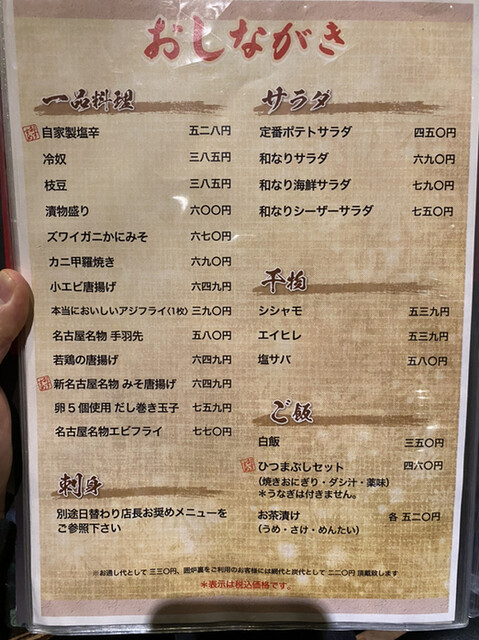 おしながき
一品料理
自家製塩辛 五二八円
冷奴 三八五円
枝豆 三八五円
漬物盛り 六〇〇円
ズワイガニかにみそ 六七〇円
カニ甲羅焼き 六九〇円
小エビ唐揚げ 六四九円
本当においしいアジフライ(1枚) 三九〇円
名古屋名物 手羽先 五八〇円
若鶏の唐揚げ 六四九円
新名古屋名物 みそ唐揚げ 六四九円
卵5個使用 だし巻き玉子 七五九円
名古屋名物エビフライ 七七〇円
刺身
別途日替わり店長お奨めメニューを
ご参照下さい
サラダ
定番ポテトサラダ 四五〇円
和なりサラダ 六九〇円
和なり海鮮サラダ 七九〇円
和なりシーザーサラダ 七五〇円
干物
シシャモ 五三九円
エイヒレ 五三九円
塩サバ 五八〇円
ご飯
白飯 三五〇円
ひつまぶしセット 四六〇円
(焼きおにぎり・ダシ汁・薬味)
*うなぎは付きません。
お茶漬け 各 五二〇円
(うめ・さけ・めんたい)
※お通し代として 三三〇円、囲炉裏をご利用のお客様には網代と炭代として 二二〇円 頂戴致します
*表示は税込価格です。